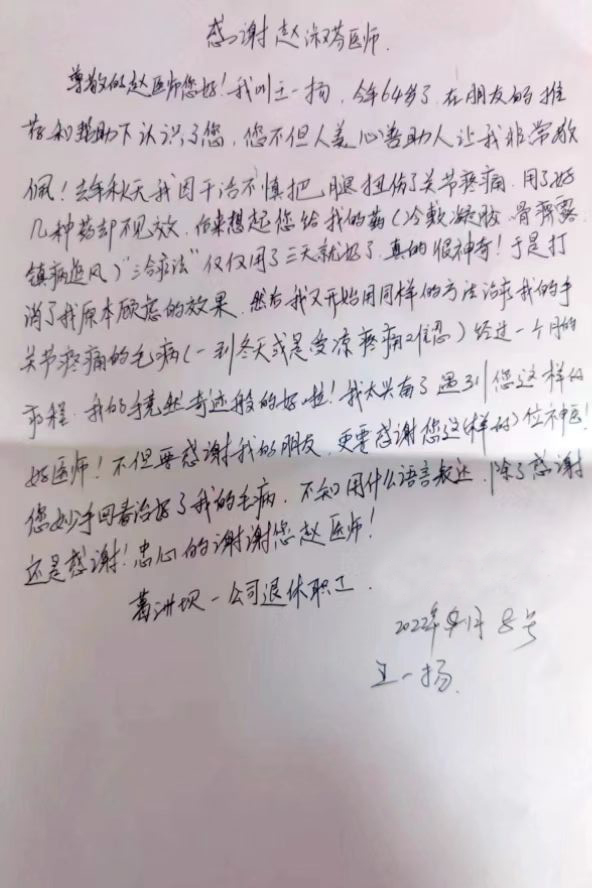 感谢赵淑芬医师.
尊敬的赵医师您好！我叫王一扬，今年64岁了，在朋友的推
荐和帮助下认识了您，您不但人美心善助人让我非常敬
佩！去年秋天我因干活不慎把腿扭伤了关节疼痛，用了好
几种药却不见效，后来想起您给我的药（冷敷凝胶、骨齐露
镇痛追风）"三合疗法"仅仅用了三天就好了，真的很神奇！于是打
消了我原本顾虑的效果，然后我又开始用同样的方法治疗我的手
关节疼痛的毛病（一到冬天或是受凉疼痛难忍）经过一个月的
疗程，我的手竟然奇迹般的好啦！我太兴奋了遇到您这样的
好医师！不但要感谢我的朋友，更要感谢您这样的一位神医！
您妙手回春治好了我的毛病，不知用什么语言表达，除了感谢
还是感谢！忠心的谢谢您赵医师！
葛洲坝一公司退休职工.
2022年 月8号
王一扬.